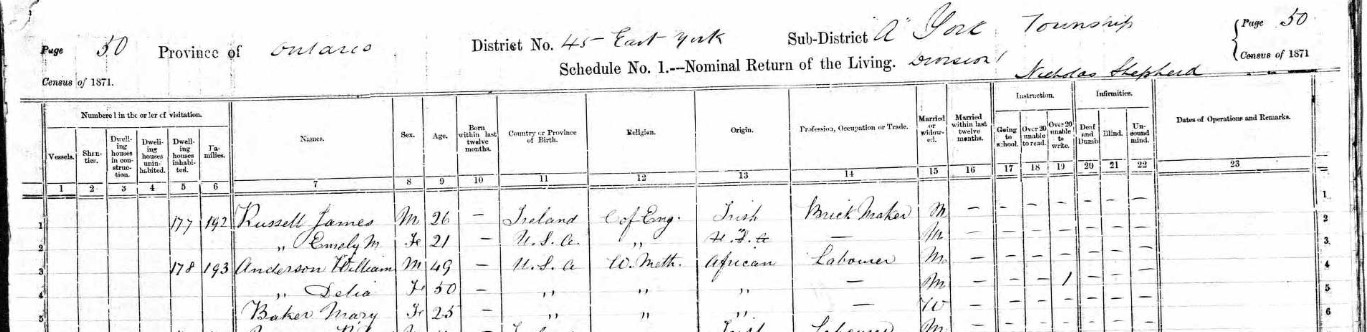 Page 50 Province of Ontario District No. 45 East York Sub-District A York Township Page 50
Census of 1871. Schedule No. 1.—Nominal Return of the Living. Division 1 Nicholas Shepherd Census of 1871
Numbered in the order of visitation. Instruction. Infirmities.
Vessels. Shanties. Dwelling houses in construction. Dwelling houses uninhabited. Dwelling houses inhabited. Families. Names. Sex. Age. Born within last twelve months. Country or Province of Birth. Religion. Origin. Profession, Occupation or Trade. Married or widowed. Married within last twelve months. Going to school. Over 20 unable to read. Over 20 unable to write. Deaf and Dumb. Blind. Unsound mind. Dates of Operations and Remarks.
1 2 3 4 5 6 7 8 9 10 11 12 13 14 15 16 17 18 19 20 21 22 23
1 177 192 Russell James M 26 – Ireland C of Eng. Irish Brick Maker M – – – – – – – 2
2 „ Emely M Fe 21 – U.S.A. „ U.S.A – M – – – – – – – 3
3 178 193 Anderson William M 49 – U.S.A W. Meth. African Labourer M – – – – – – –
4 „ Delia Fe 50 – „ „ „ – M – – – 1 – – – 5
5 Baker Mary Fe 25 – „ „ „ – W – – – – – – – 6
Irish Labourer M